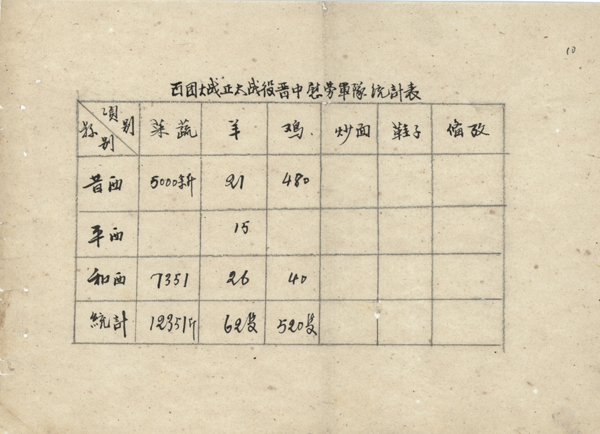 10
百团大战正太战役晋中慰劳軍隊統計表
項别 縣别 菜蔬 羊 鸡 炒面 鞋子 備攷
昔西 5000斤 21 480
平西 15
和西 7351 26 40
統計 12351斤 62隻 520隻